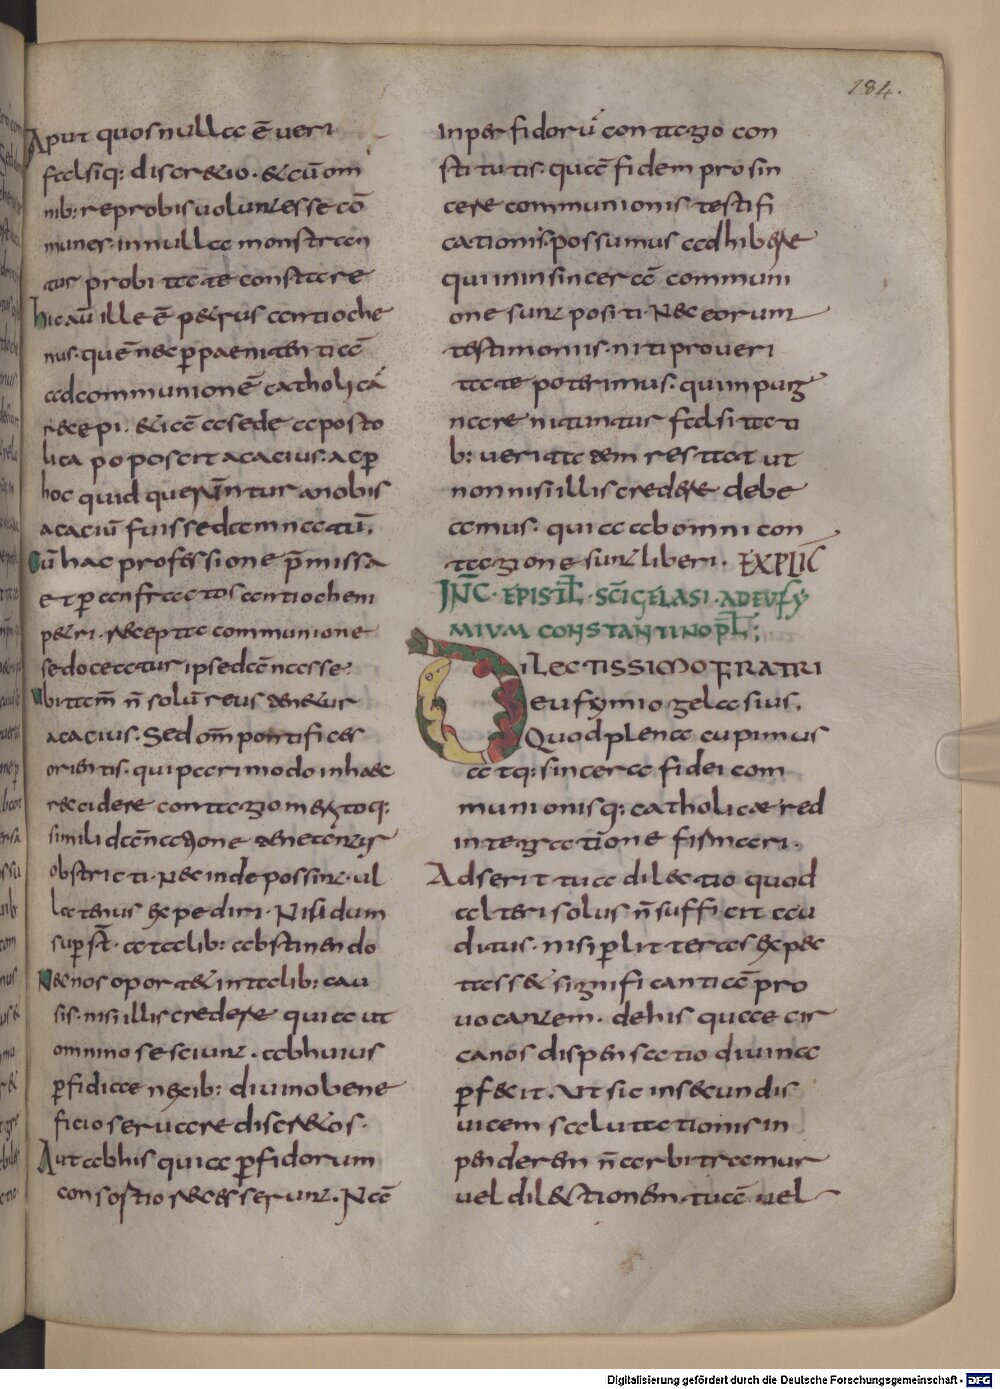 184.
Aput quos nulla ē ueri
falsiq: discr&io · &cū om
nib: reprobis uolunt esse cō
munes · in nulla monstran
tur probitate constare
hic aū ille ē p&rus antioche
nus · quē nec p paenitentiā
ad communionē catholicā
recepi · &iā a sede aposto
lica poposcit acacius · ac p
hoc quid querunt ur a nobis
acaciū fuisse damnatū,
Cū hac professione p̄missa
et p anfractos antiochem
p&ri · recepta communione
se doceatur ipse dānasse ·
Ubi tam̄ n̄ solū reus den&ur
acacius · Sed om̄ pontifices
orientis · qui pari modo in haec
recidere contagom ex toq:
simili dānatione tenetentur
obstricti · Nec inde possint · ul
latenus expediri · Nisi dum
sup st̄ · a talib: abstinendo
N&nos oport& in talib: cau
sis · nisi illis credere qui aut
omnino se sciunt · ab huius
p fidiae nexib: diuino bene
ficio seruare discr&os ·
Aut ab his quia p fidorum
consostio recesserunt · Nā
in perfidorū contagio con
stitutis · quā fidem pro sin
cere communionis testifi
cationis · possumus adhibere
qui in insincerā communi
one sunt positi · Nec eorum
testimoniis · niti pro ueri
tate poterimus · qui inpug
nare nituntur falsitati
b: ueritatem restat ut
non nisi illis credere debe
amus · quia ab omni con
tagione sunt liberi · EXPLIC̄
INC̄ · EPISTL̄ · SC̄I GELASI · AD EUFY
MIUM CONSTANTINOPL̄ ;
DILECTISSIMO FRATRI
eufymio gelasius ,
Quod plena cupimus
atq: sincera fidei com
munionisq: catholicae red
integratione firmari ·
Adserit tua dilectio quod
alteri solus n̄ sufficit au
ditus · nisi p litteras expec
tass& significantiā pro
uocantem · de his quae cir
ca nos dispensatio diuina
p fecit · Ut sic in secundis
uicem salutationis in
penderem n̄ arbitramur
uel dilectionem tuā uel
Digitalisierung gefördert durch die Deutsche Forschungsgemeinschaft - DFG